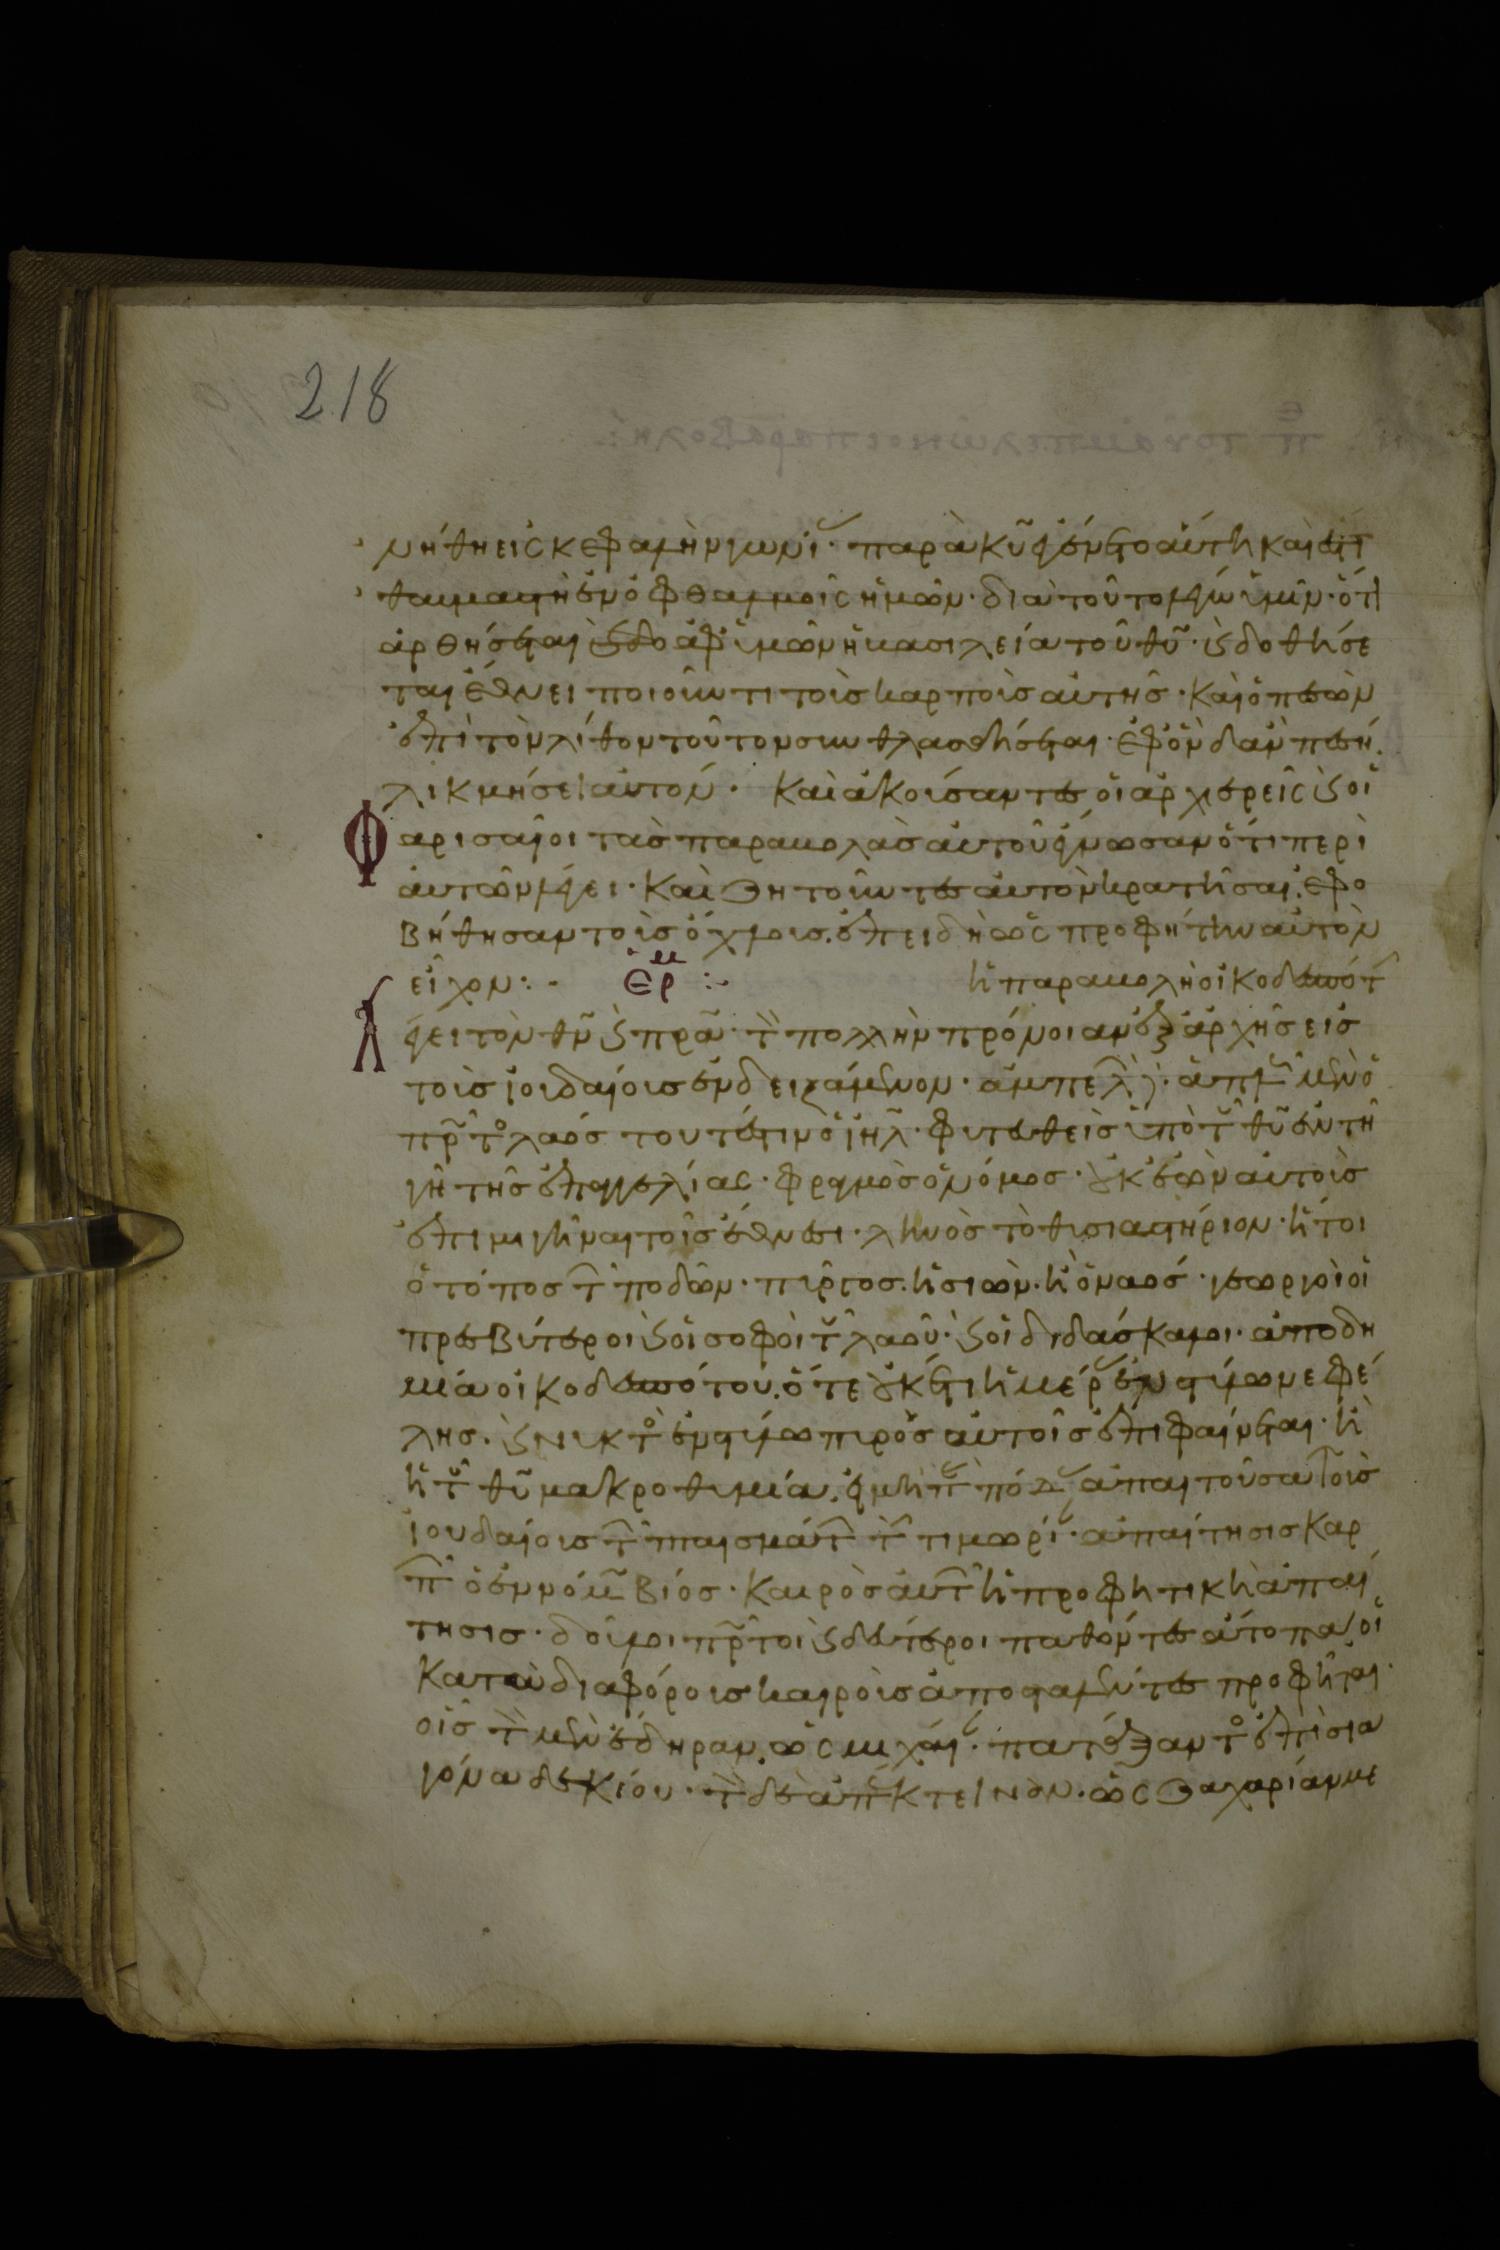 218
νήθη εἰς κεφαλὴν γωνί· παρὰ κ̅υ̅ ἐγένετο αὕτη καὶ ἔστ
θαυμαστὴ ἐν ὀφθαλμοῖς ἡμῶν· διὰ τοῦτο λέγω ὑμῖν· ὅτι
ἀρθήσεται ἀφ' ὑμῶν ἡ βασιλεία τοῦ θ̅υ̅· ϗ δοθήσε
ται ἔθνει ποιοῦντι τοὺς καρποὺς αὐτῆς· Καὶ ὁ πεσὼν
ἐπὶ τὸν λίθον τοῦτον συνθλασθήσεται· ἐφ' ὃν δ' ἂν πέσῃ.
λικμήσει αὐτόν· Καὶ ἀκούσαντες οἱ ἀρχιερεῖς ϗ οἱ
Φαρισαῖοι τὰς παραβολὰς αὐτοῦ ἔγνωσαν ὅτι περὶ
αὐτῶν λέγει· Καὶ ζητοῦντες αὐτὸν κρατῆσαι. ἐφο
βήθησαν τοὺς ὄχλους. ἐπειδὴ ὡς προφήτην αὐτὸν
εἶχον:· Ερμ :· ἡ παραβολὴ οἰκοδεσπότ
λέγει τὸν θ̅ν̅ ϗ π̅ρ̅α̅· τ πολλὴν πρόνοιαν ἐξ ἀρχῆς εἰς
τοὺς ἰουδαίους ἐνδειξάμενον· ἀμπελ
πρ τ λαός τουτέστιν ὁ ι̅η̅λ̅· φυτευθεὶς ὑπὸ τ θ̅υ̅ ἐν τῇ
γῇ τῆς ἐπαγγελίας· φραγμὸς ὁ νόμος· οὐκ ἐῶν αὐτοὺς
ἐπιμιγῆναι τοῖς ἔθνεσι· ληνὸς τὸ θυσιαστήριον· ἤτοι
ὁ τόπος τ σπονδῶν· πύργος. ἡ σιών. ἢ ὁ ναός· γεωργοὶ οἱ
πρεσβύτεροι ϗ οἱ σοφοὶ τ λαοῦ· ϗ οἱ διδάσκαλοι· ἀποδη
μία οἰκοδεσπότου. ὅτε οὐκέτι ἡμέρ ἐν στύλω νεφέ
λης. ϗ νυκτ ἐν στύλω πυρὸς αὐτοῖς ἐπιφαίνεται· ἢ
ἡ τ θ̅υ̅ μακροθυμία. ἀπαιτοῦσα τοὺς
ἰουδαίους τ πταισμάτ τ τιμωρί· ἀπαίτησις καρ
π ὁ ἔννομ βίος· Καιρὸς αὐτ ἡ προφητικὴ ἀπαί
τησις· δοῦλοι πρ τοι ϗ δεύτεροι παθόντες αὐτόπ οἱ
κατὰ διαφόρους καιροὺς ἀποσταλέντες προφῆται·
οὓς τ μὲν ἔδειραν. ὡς μιχαί· πατάξαντ ἐπὶ σια
γόνα σεδεκίου· τ δὲ ἀπέκτεινον. ὡς ζαχαρίαν με